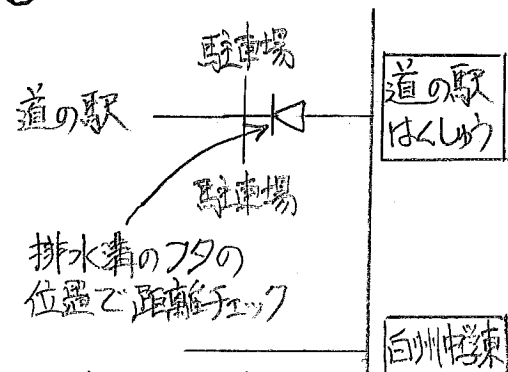 駐車場
道の駅
道の駅
はくしゅう
駐車場
排水溝のフタの
位置で距離チェック
白州中学東